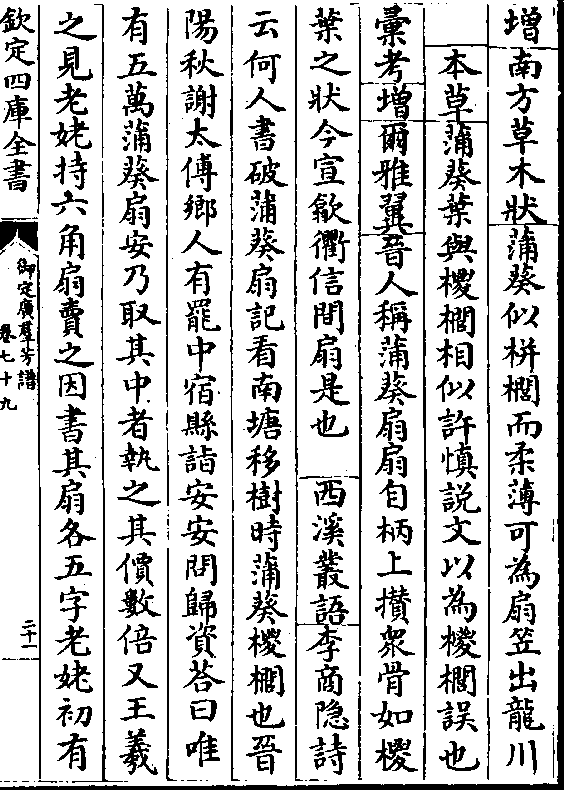 增南方草木狀蒲葵似栟櫚而柔薄可為扇笠出龍川
本草蒲葵葉與椶櫚相似許慎說文以為椶櫚誤也
彙考增爾雅翼晉人稱蒲葵扇扇自柄上攅衆骨如椶
葉之狀今宣歙衢信間扇是也　西溪叢語李商隐詩
云何人書破蒲葵扇記看南塘移樹時蒲葵椶櫚也晉
陽秋謝太傅鄉人有罷中宿縣詣安安問歸資荅曰唯
有五萬蒲葵扇安乃取其中者執之其價數倍又王羲
之見老姥持六角扇賣之因書其扇各五字老姥初有
欽定四庫全書
御定廣羣芳譜
卷七十九
二十一